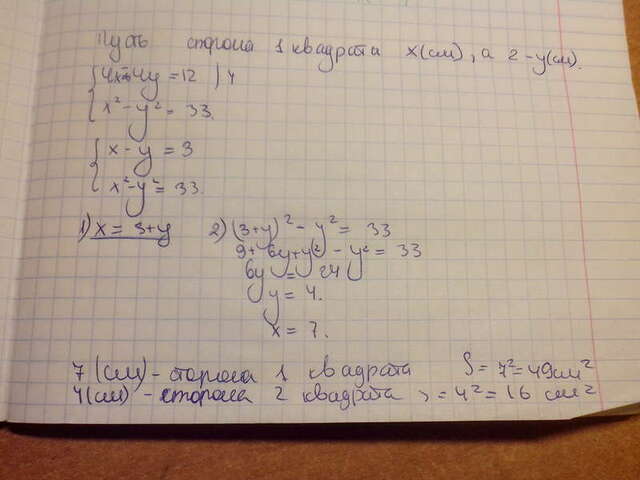 Пусть сторона 1 квадрата x(см), а 2 – y(см).
{ 4x – 4y = 12 | 4
x² – y² = 33
{ x – y = 3
x² – y² = 33
1) x = 3+y 2) (3+y)² – y² = 33
9 + 6y + y² – y² = 33
6y = 24
y = 4.
x = 7.
7 (см) – сторона 1 квадрата S = 7² = 49 см²
4(см) – сторона 2 квадрата = 4² = 16 см²